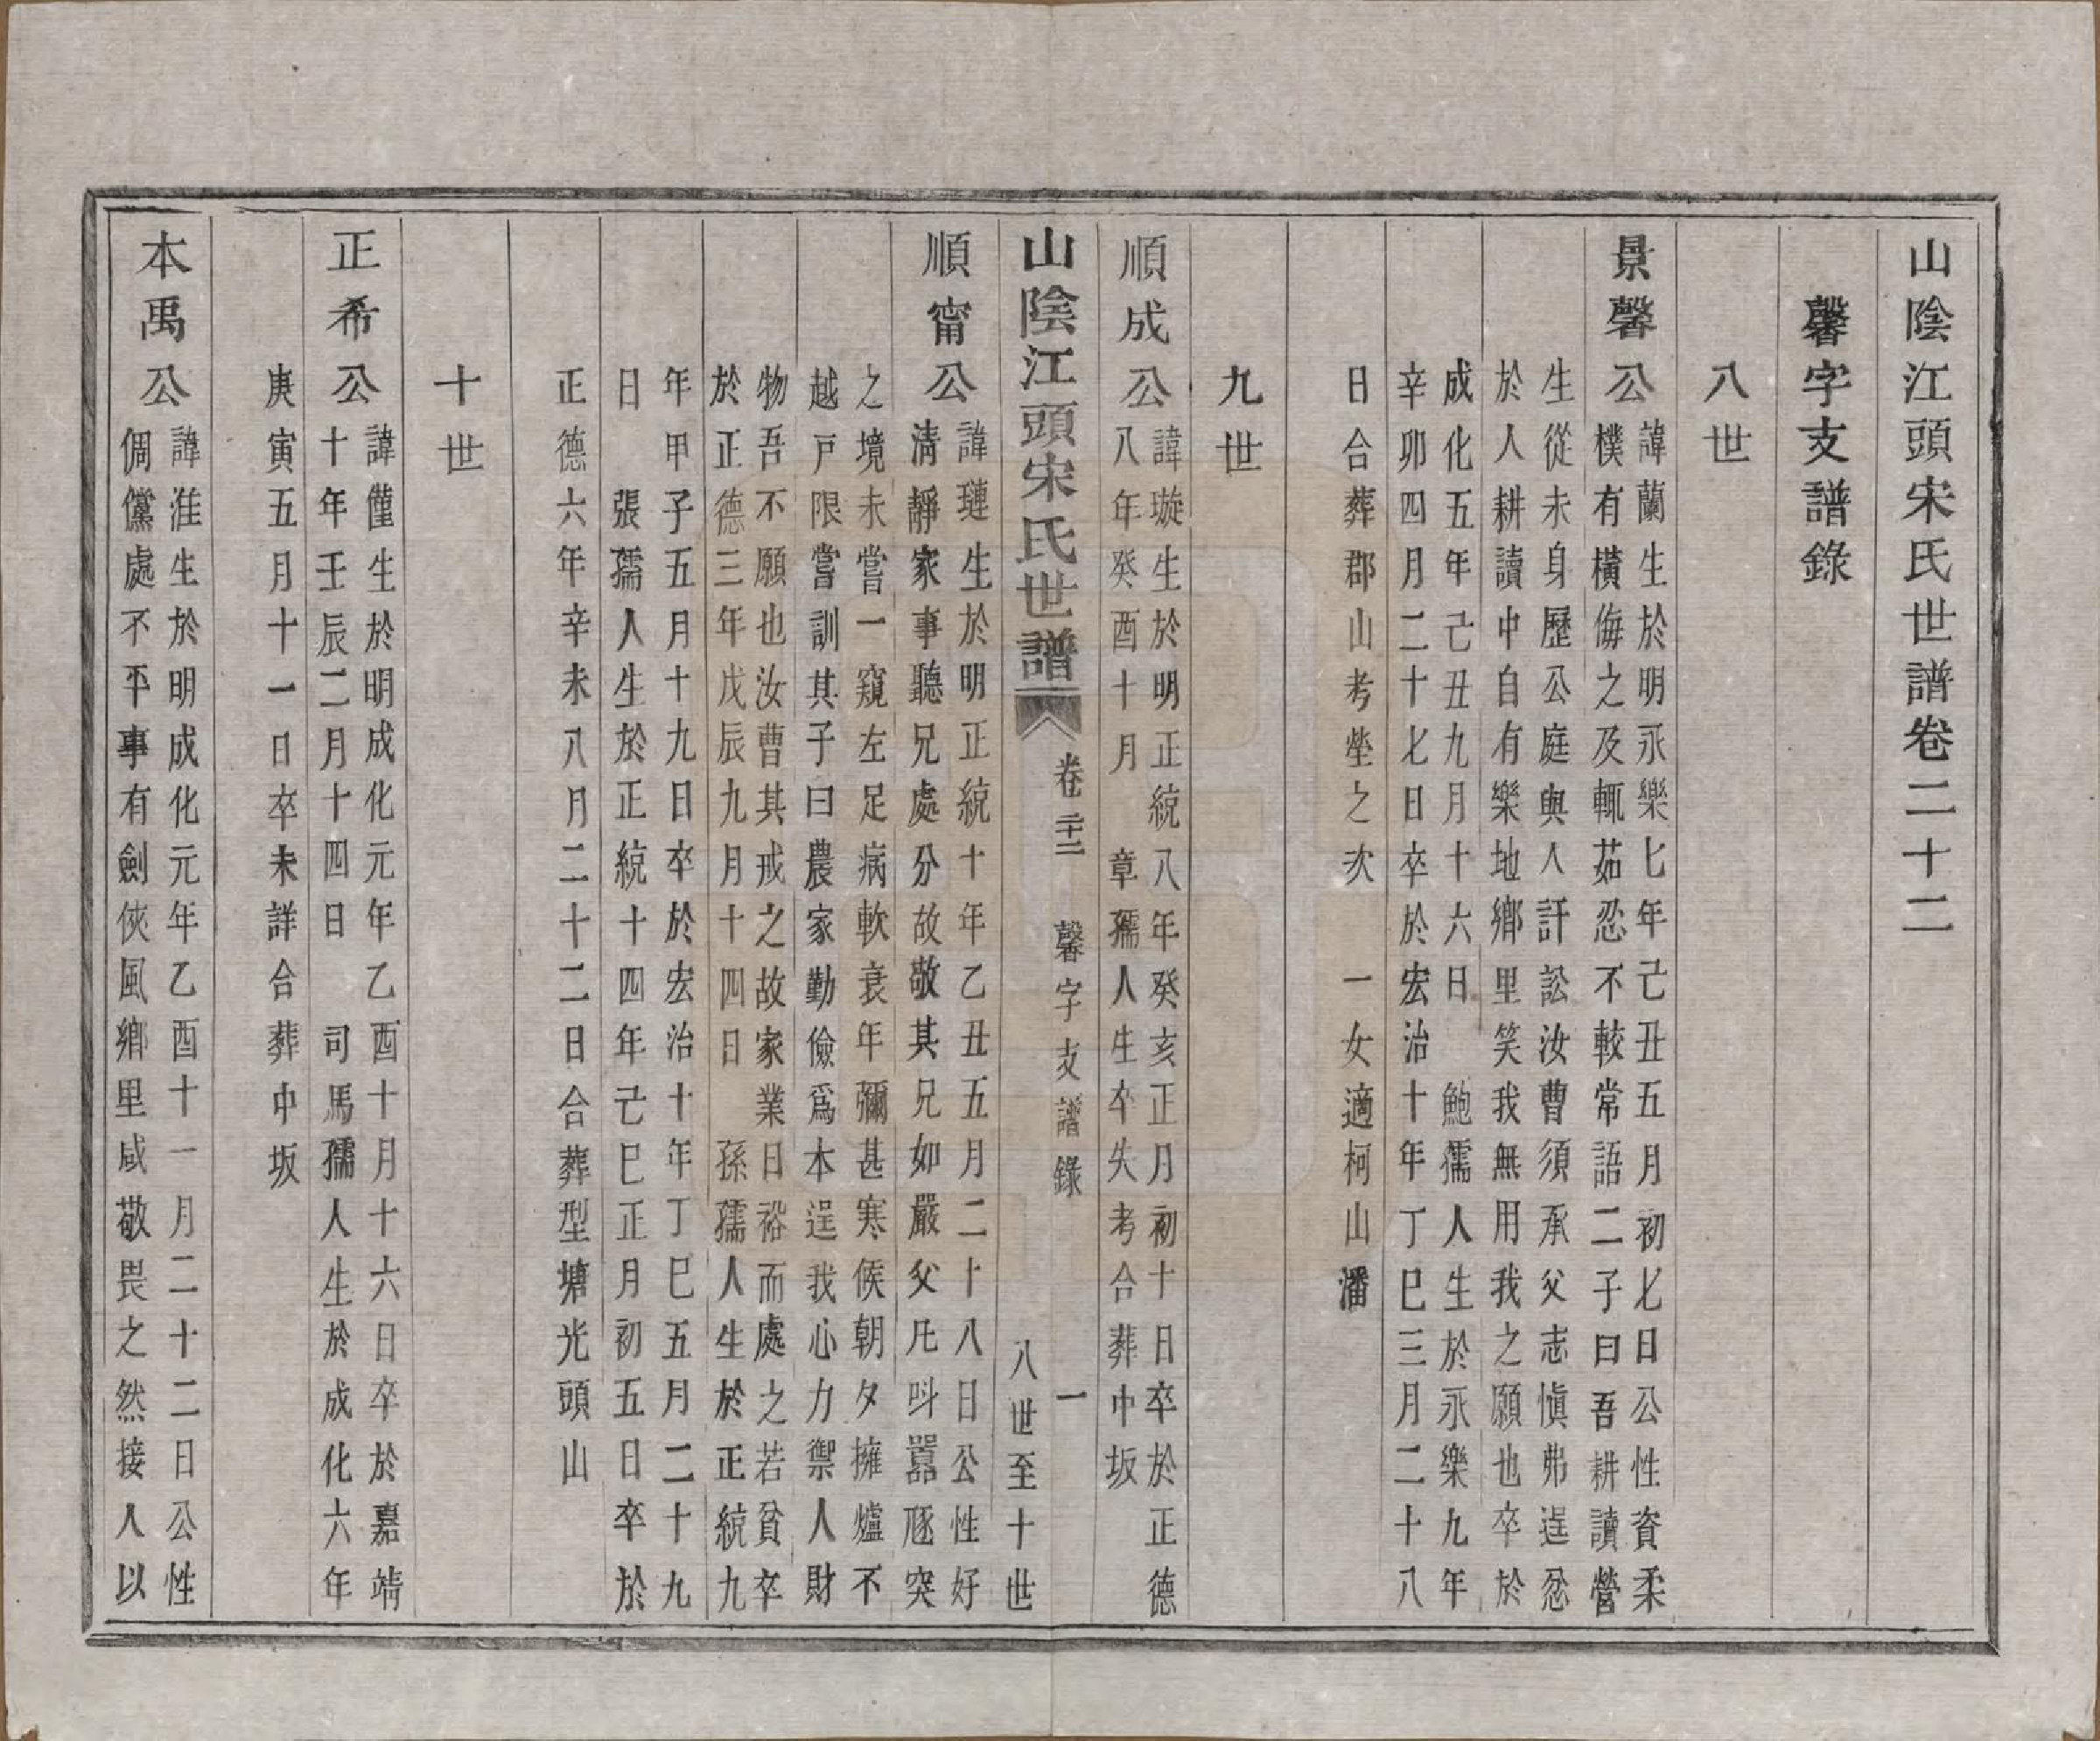 山陰江頭宋氏世譜卷二十二
馨字支譜錄
八世
景馨公
諱蘭生於明永樂七年己丑五月初七日公性資柔
樸有橫侮之及輒茹忍不較常語二子曰吾耕讀營
生從未身歷公庭與人訐訟汝曹須承父志慎弗逞忿
於人耕讀中自有樂地鄉里笑我無用我之願也卒於
成化五年己丑九月十六日 鮑孺人生於永樂九年
辛卯四月二十七日卒於宏治十年丁巳三月二十八
日合葬郡山考塋之次 一女適柯山潘
九世
順成公
諱璇生於明正統八年癸亥正月初十日卒於正德
八年癸酉十月 章孺人生卒失考合葬中坂
山陰江頭宋氏世譜 卷二十二 馨字支譜錄 一 八世至十世
順甯公
諱璉生於明正統十年乙丑五月二十八日公性好
清靜家事聽兄處分故敬其兄如嚴父凡呌囂豗突
之境未嘗一窺左足病軟衰年彌甚寒候朝夕擁爐不
越戶限嘗訓其子曰農家勤儉爲本逞我心力禦人財
物吾不願也汝曹其戒之故家業日裕而處之若貧卒
於正德三年戊辰九月十四日 孫孺人生於正統九
年甲子五月十九日卒於宏治十年丁巳五月二十九
日 張孺人生於正統十四年己巳正月初五日卒於
正德六年辛未八月二十二日合葬型塘光頭山
十世
正希公
諱僅生於明成化元年乙酉十月十六日卒於嘉靖
十年壬辰二月十四日 司馬孺人生於成化六年
庚寅五月十一日卒未詳合葬中坂
本禹公
諱淮生於明成化元年乙酉十一月二十二日公性
倜儻處不平事有劍俠風鄉里咸敬畏之然接人以